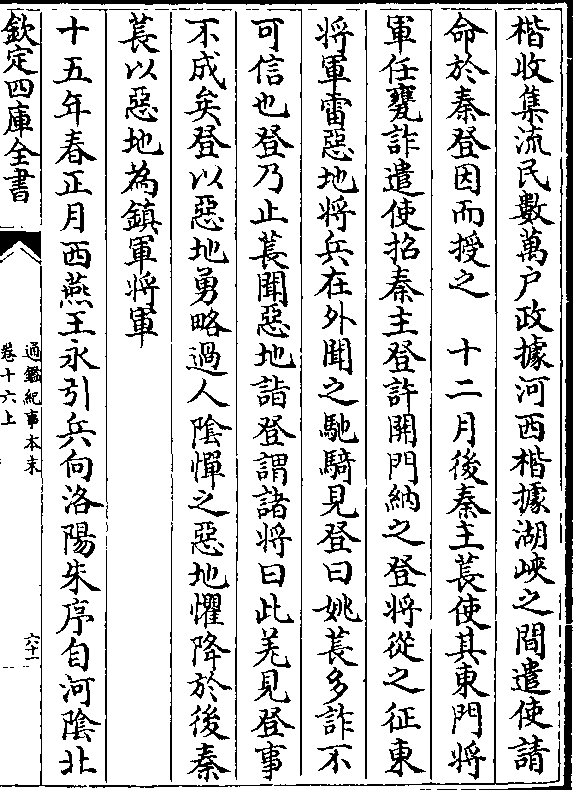 楷收集流民數萬户政據河西楷據湖峽之間遣使請
命於秦登因而授之　十二月後秦主萇使其東門將
軍任甕詐遣使招秦主登許開門納之登將從之征東
將軍雷惡地將兵在外聞之馳騎見登曰姚萇多詐不
可信也登乃止萇聞惡地詣登謂諸將曰此羌見登事
不成矣登以惡地勇略過人陰憚之惡地懼降於後秦
萇以惡地為鎮軍將軍
十五年春正月西燕王永引兵向洛陽朱序自河陰北
欽定四庫全書
通鑑紀事本末
卷十六上
六十一